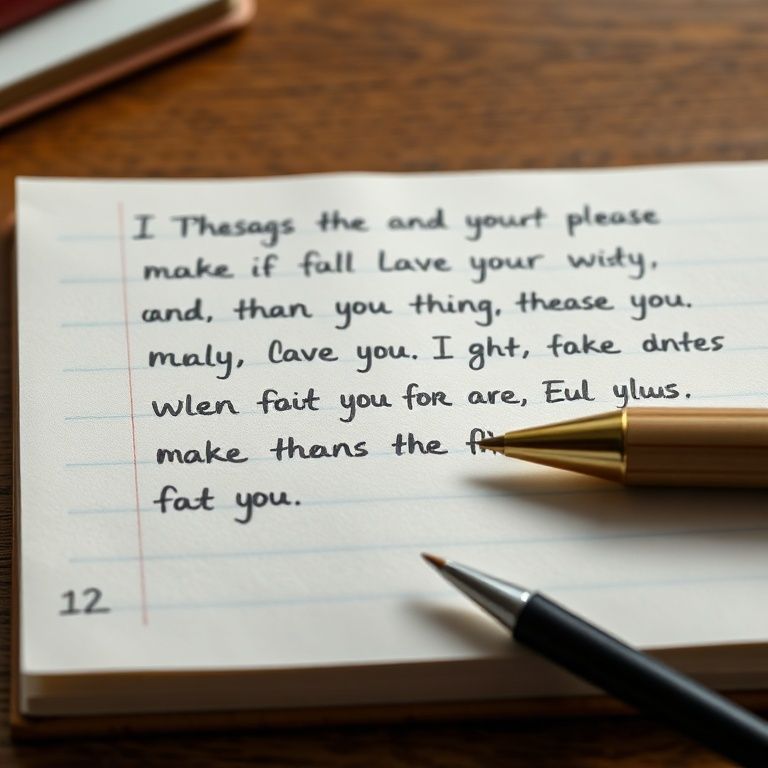 I Thesags the and yourt please
make if fall Lave your wisty,
and, than you thing, thease you.
maly, Cave you. I ght, fake dntes
wlen fait you for are, Eul ylws.
make thans the
fat you.
12